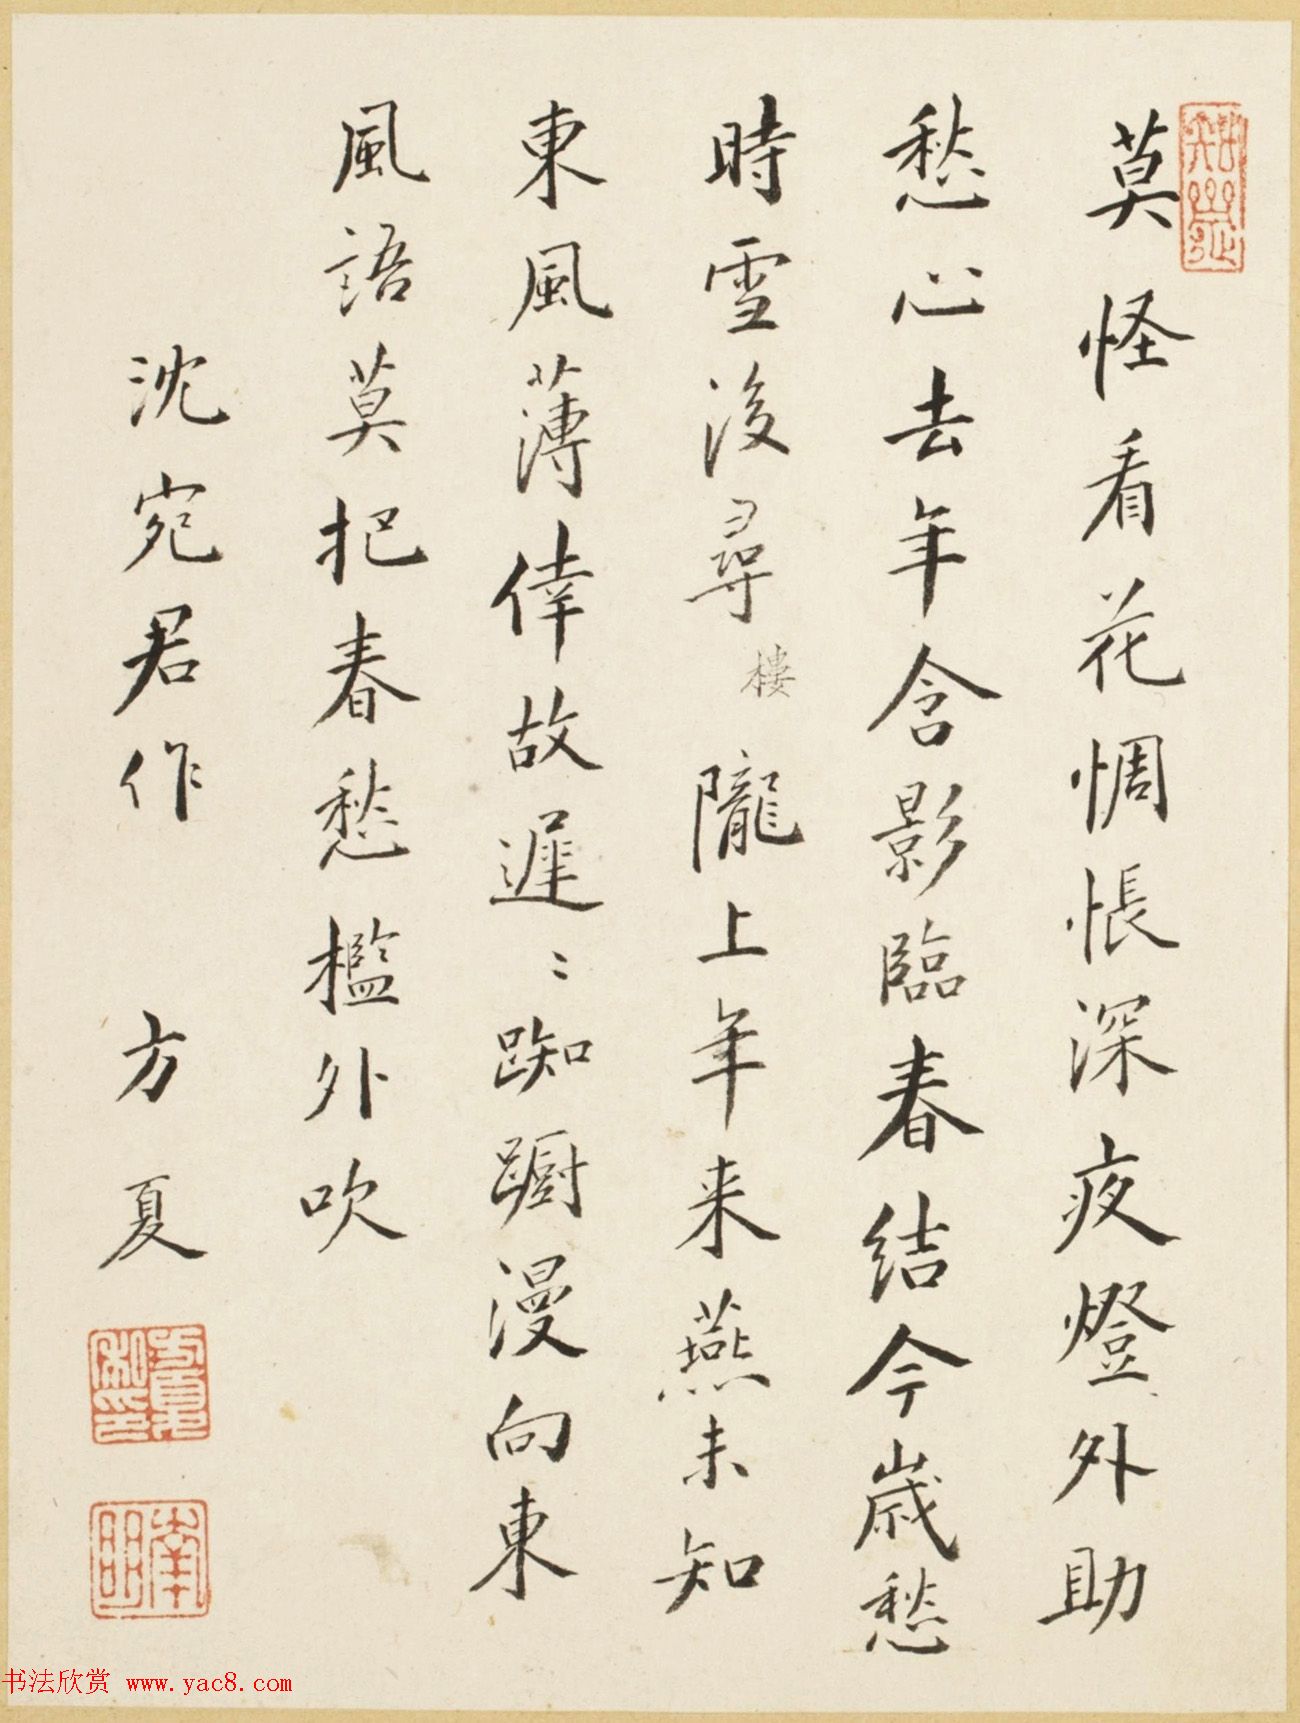 莫怪看花惆悵深夜燈外助
愁心去年含影臨春結今歲愁
時雪後尋樓隴上年来燕未知
東風薄倖故遲〻踟躕漫向東
風語莫把春愁檻外吹
沈宛君作 方夏
方夏私印
南明
书法欣赏 www.yac8.com